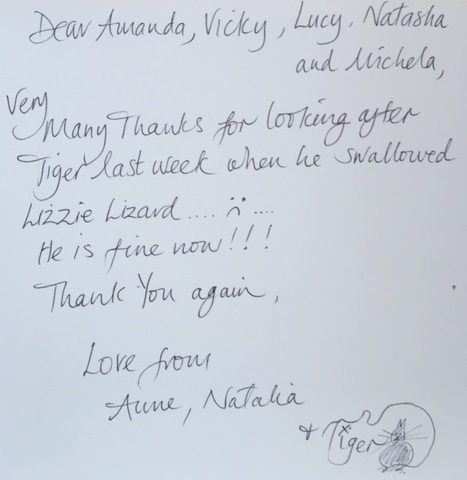 Dear Amanda, Vicky, Lucy, Natasha
and Michela,
Very
Many Thanks for looking after
Tiger last week when he swallowed
Lizzie Lizard .... :( ....
He is fine now!!!
Thank You again,
Love from
Anne, Natalia
+ Tiger